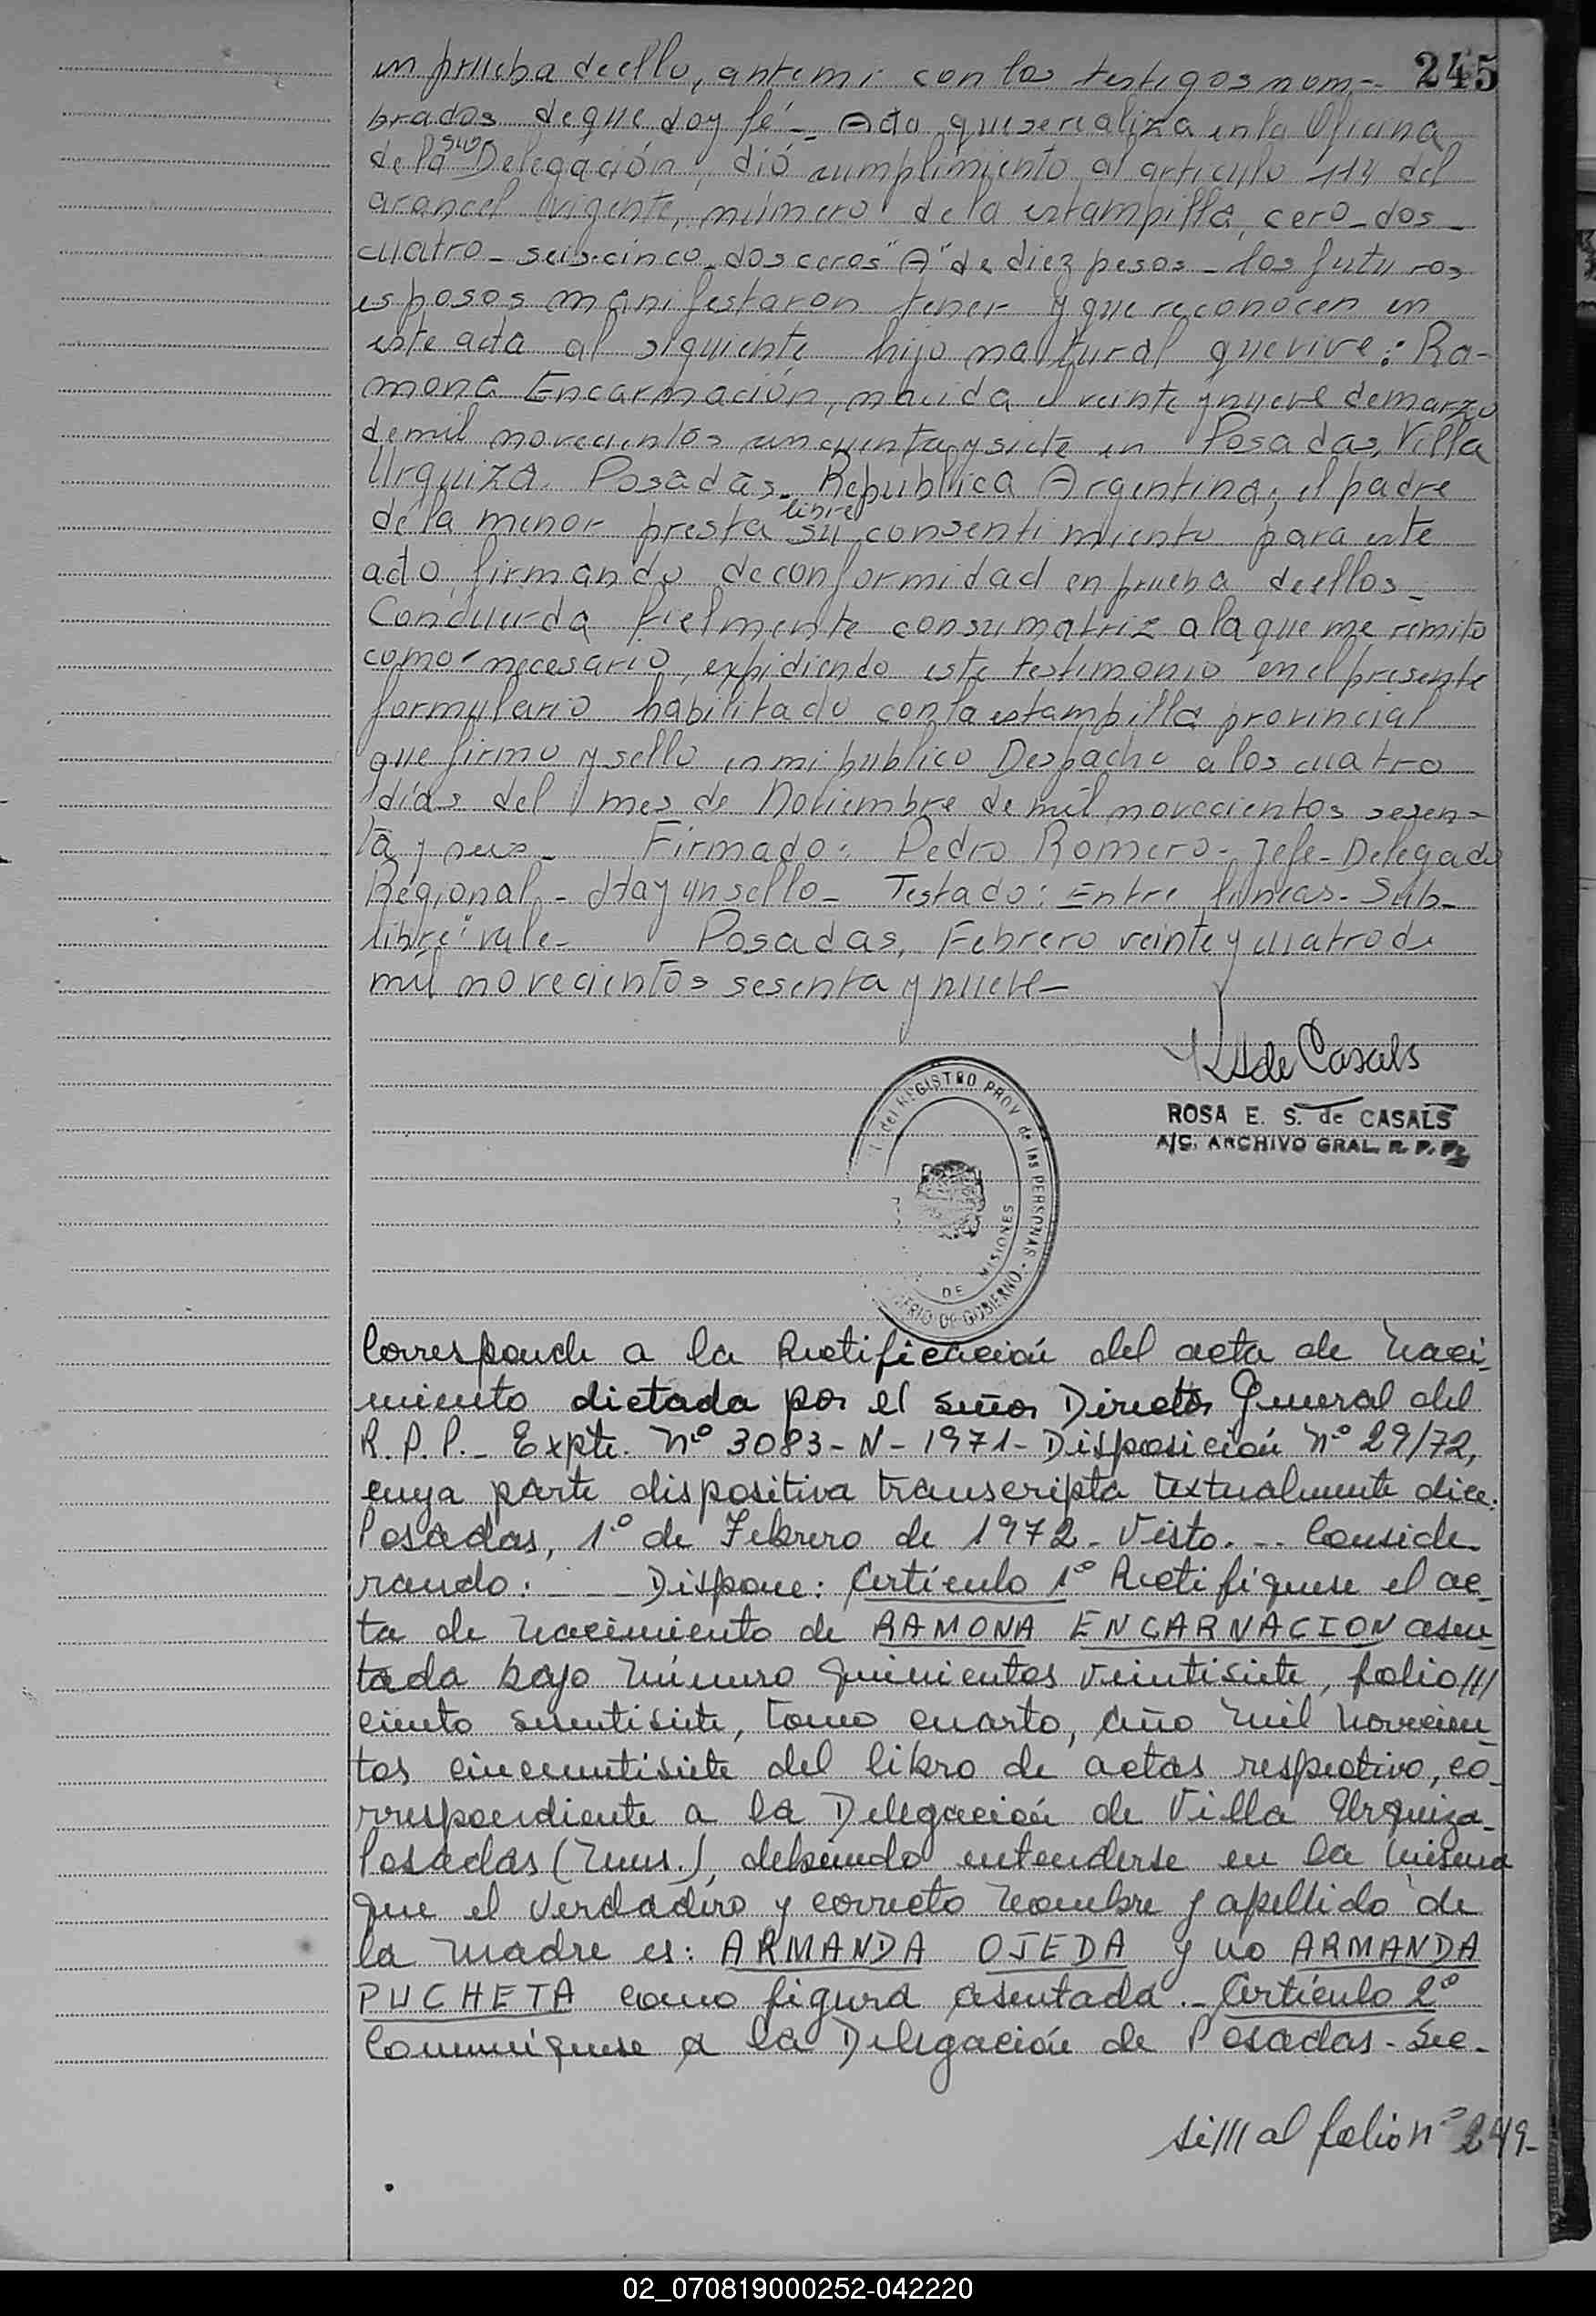 245
en prueba de ello, ante mi con los testigos nom-
brados de que doy fé_ Acto que se realiza en la Oficina
de la Sub Delegación, dió cumplimiento al articulo 114 del
arancel vigente, número de la estampilla, cero_dos_
cuatro_seis-cinco_dos ceros "A" de diez pesos_ los futuros
esposos manifestaron tener y que reconocen en
este acta al siguiente hijo natural que vive: Ra-
mona Encarnación, nacida el veinte y nueve de marzo
de mil novecientos cincuenta y siete en Posadas, Villa
Urquiza. Posadas_ República Argentina; el padre
de la menor presta su libre consentimiento para este
acto, firmando de conformidad en prueba de ellos_
Concuerda fielmente con su matriz a la que me remito
como necesario, expidiendo este testimonio en el presente
formulario habilitado con la estampilla provincial
que firmo y sello en mi publico Despacho a los cuatro
días del mes de Noviembre de mil novecientos sesen-
ta y seis_ Firmado: Pedro Romero- Jefe-Delegado
Regional_ Hay un sello_ Testado: Entre lineas- Sub-
libre" vale- Posadas, Febrero veinte y cuatro de
mil novecientos sesenta y nueve-
de Casals
ROSA E. S. de CASALS
A/C. ARCHIVO GRAL. R. P. P.
del REGISTRO PROV. de las PERSONAS -
DE MISIONES
DE GOBIERNO
Corresponde a la Rectificación del acta de Naci-
miento dictada por el señor Director General del
R. P. P._ Expte. Nº 3083-N-1971- Disposición Nº 29/72,
cuya parte dispositiva transcripta textualmente dice:
Posadas, 1º de Febrero de 1972- Visto. -- Conside-
rando: ___ Dispone: Artículo 1º Rectifíquese el ac-
ta de nacimiento de RAMONA ENCARNACION asen-
tada bajo número quinientos veintisiete, folio///
ciento sesentisiete, tomo cuarto, año mil novecien-
tos cincuentisiete del libro de actas respectivo, co-
rrespondiente a la Delegación de Villa Urquiza-
Posadas (Mnes.), debiendo entenderse en la misma
que el verdadero y correcto nombre y apellido de
la madre es: ARMANDA OJEDA y no ARMANDA
PUCHETA como figura asentada._ Artículo 2º
Comuníquese a la Delegación de Posadas- Sec-
si/// al folio nº 249-
02_070819000252-042220